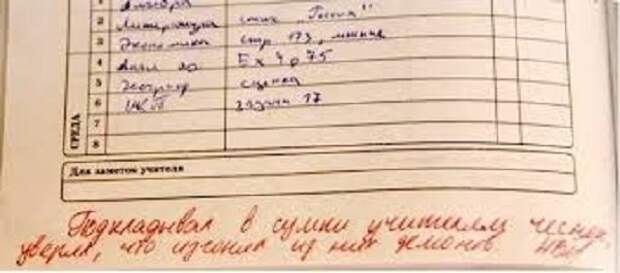 1 Алгебра
2 Литература стих „Россия"
3 Экономика стр 173, мнение
4 Англ яз Ex 4 p 75
5 Географ сценка
6 задачи 17
7
8
СРЕДА
Для заметок учителя
Подкладывал в сумки учителям чеснок,
уверял, что изгонял из них демонов